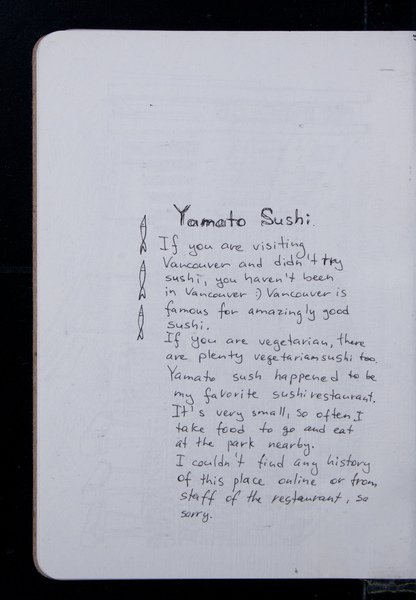 Yamato Sushi
If you are visiting
Vancouver and didn't try
sushi, you haven't been
in Vancouver :) Vancouver is
famous for amazingly good
sushi.
If you are vegetarian, there
are plenty vegetarian sushi too.
Yamato sush happened to be
my favorite sushi restaurant.
It's very small, so often I
take food to go and eat
at the park nearby.
I couldn't find any history
of this place online or from
staff of the restaurant, so
sorry.